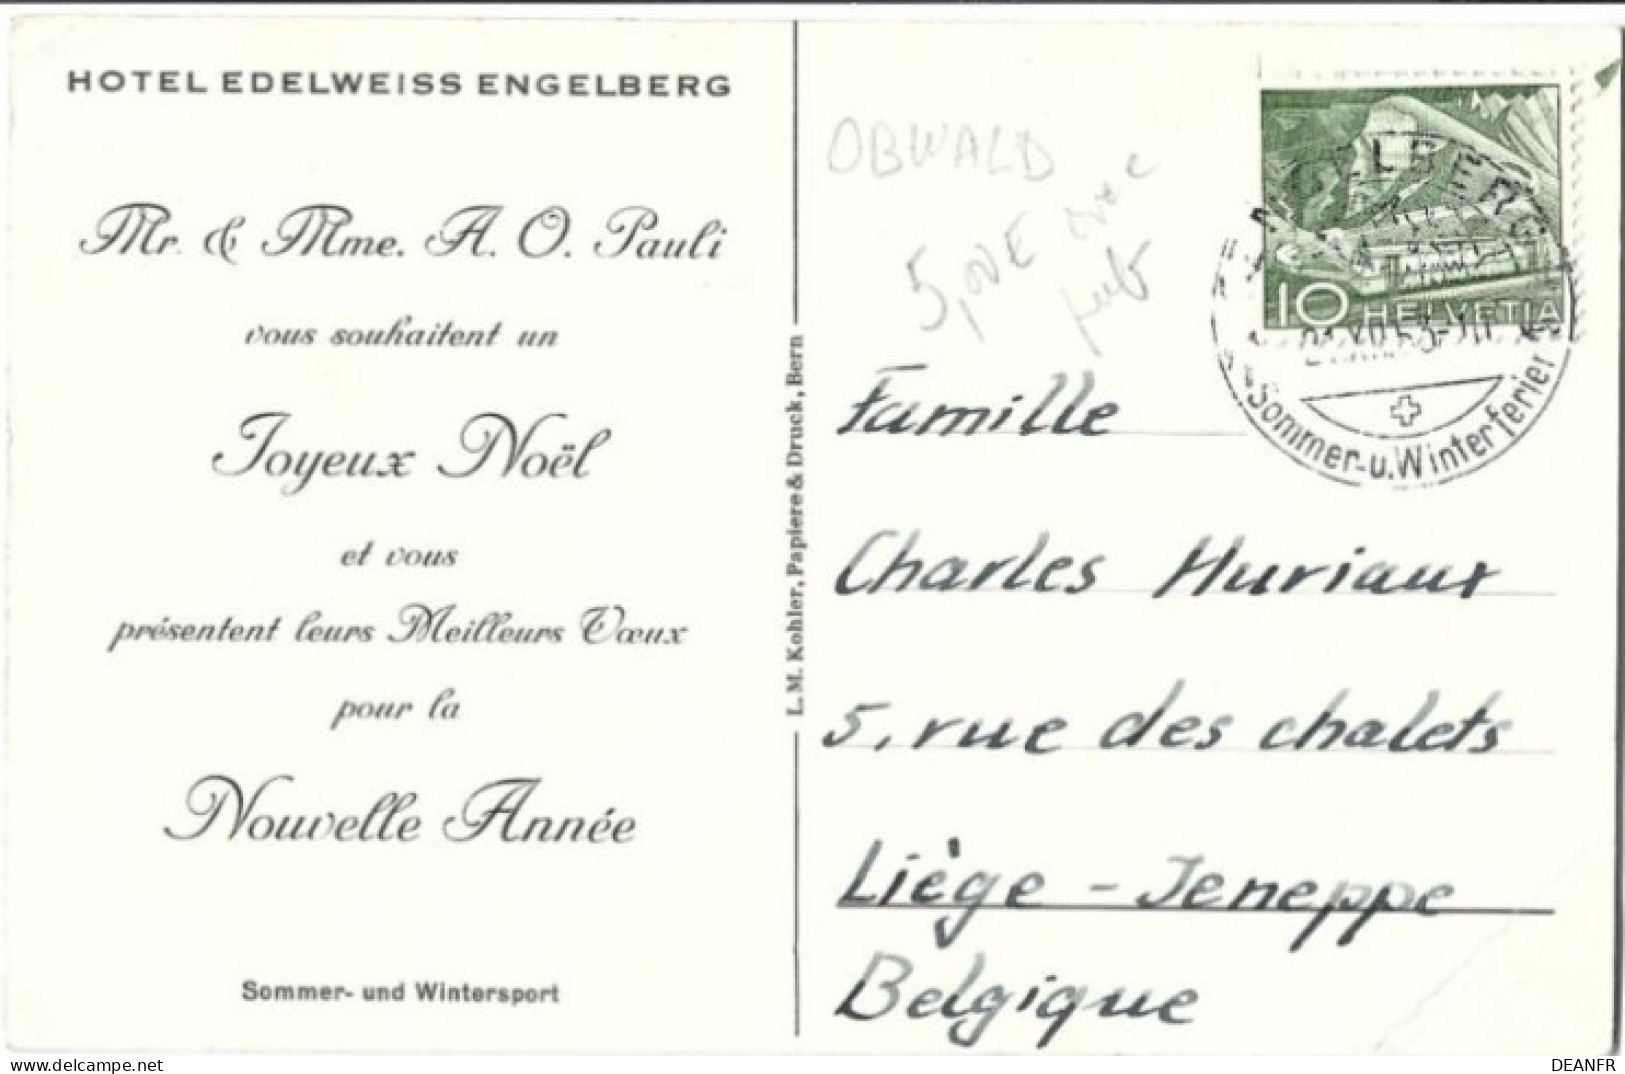 HOTEL EDELWEISS ENGELBERG
Mr. & Mme. A. O. Pauli
vous souhaitent un
Joyeux Noël
et vous
présentent leurs Meilleurs Vœux
pour la
Nouvelle Année
Sommer- und Wintersport
L. M. Kohler, Papiere & Druck, Bern
OBWALD
10 HELVETIA
Sommer-u.Winterferien
Famille
Charles Huriaux
5, rue des chalets
Liège - Jeneppe
Belgique
DEANFR